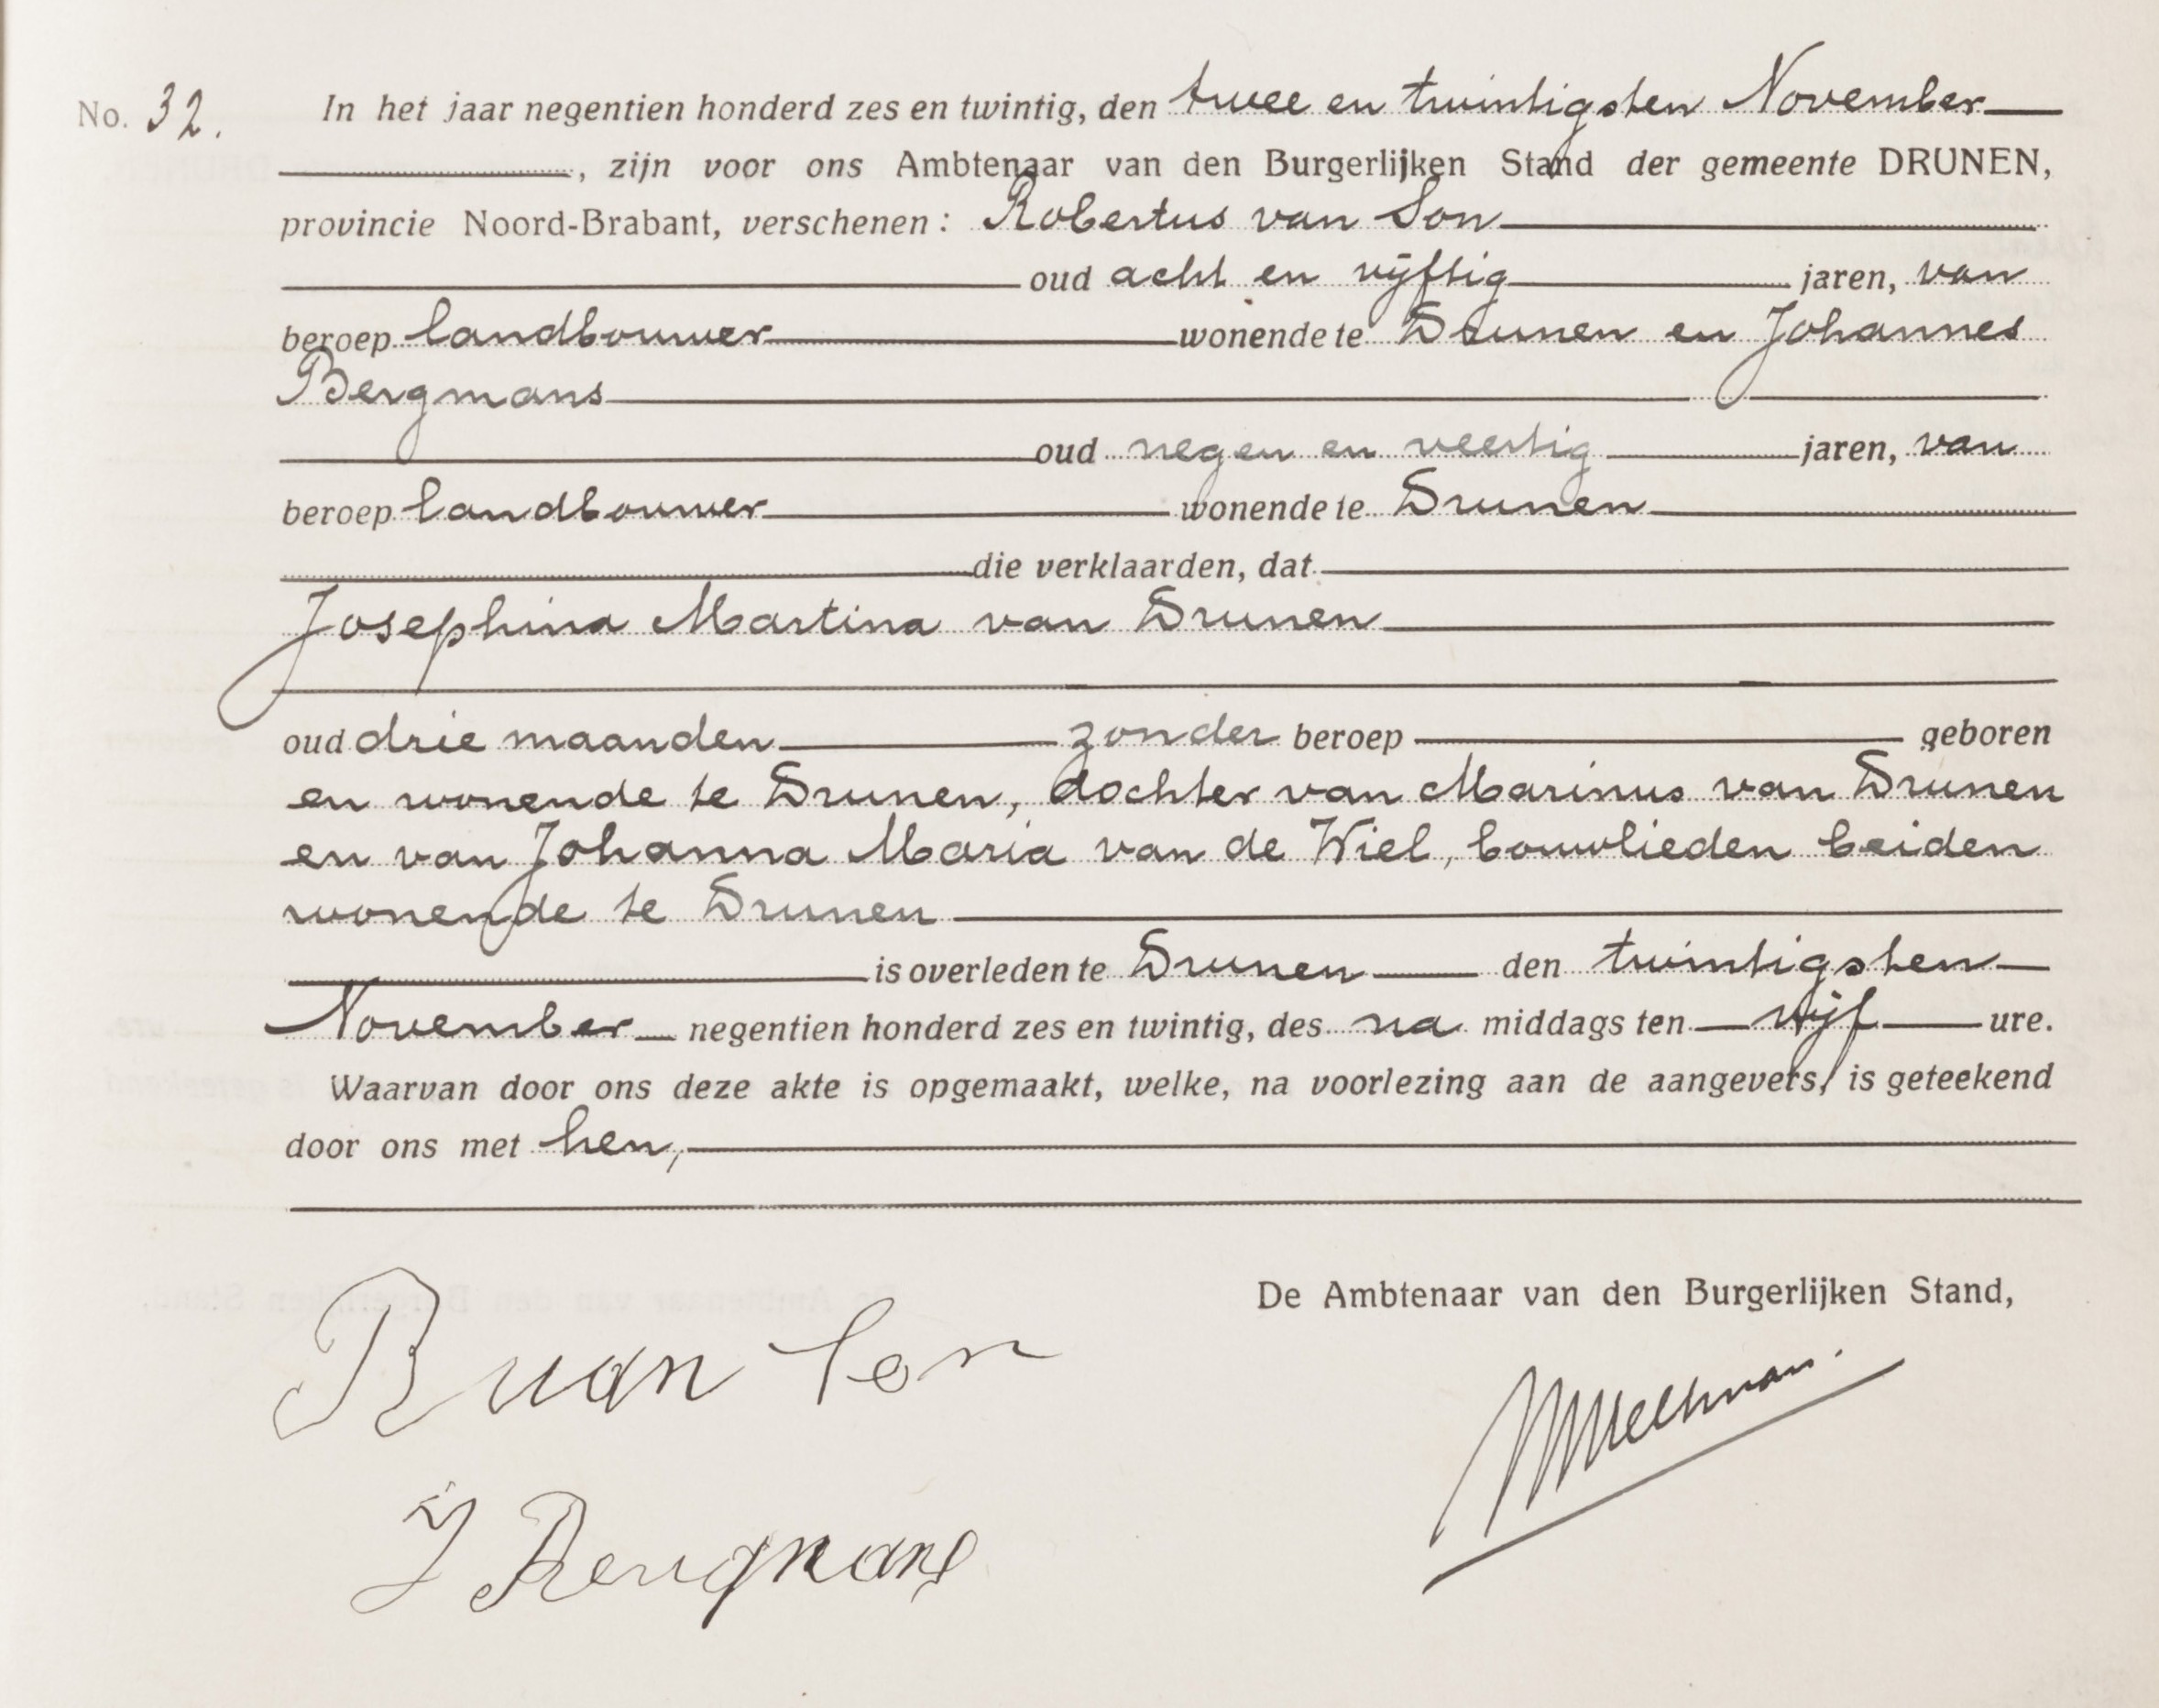 No. 32. In het jaar negentien honderd zes en twintig, den twee en twintigsten November
, zijn voor ons Ambtenaar van den Burgerlijken Stand der gemeente DRUNEN,
provincie Noord-Brabant, verschenen: Robertus van Son
oud acht en vijftig jaren, van
beroep landbouwer wonende te Drunen en Johannes
Bergmans
oud negen en veertig jaren, van
beroep landbouwer wonende te Drunen
die verklaarden, dat
Josephina Martina van Drunen
oud drie maanden zonder beroep geboren
en wonende te Drunen, dochter van Marinus van Drunen
en van Johanna Maria van de Wiel, bouwlieden beiden
wonende te Drunen
is overleden te Drunen den twintigsten
November negentien honderd zes en twintig, des na middags ten vijf ure.
Waarvan door ons deze akte is opgemaakt, welke, na voorlezing aan de aangevers, is geteekend
door ons met hen,
De Ambtenaar van den Burgerlijken Stand,
R van Son
J Bergmans